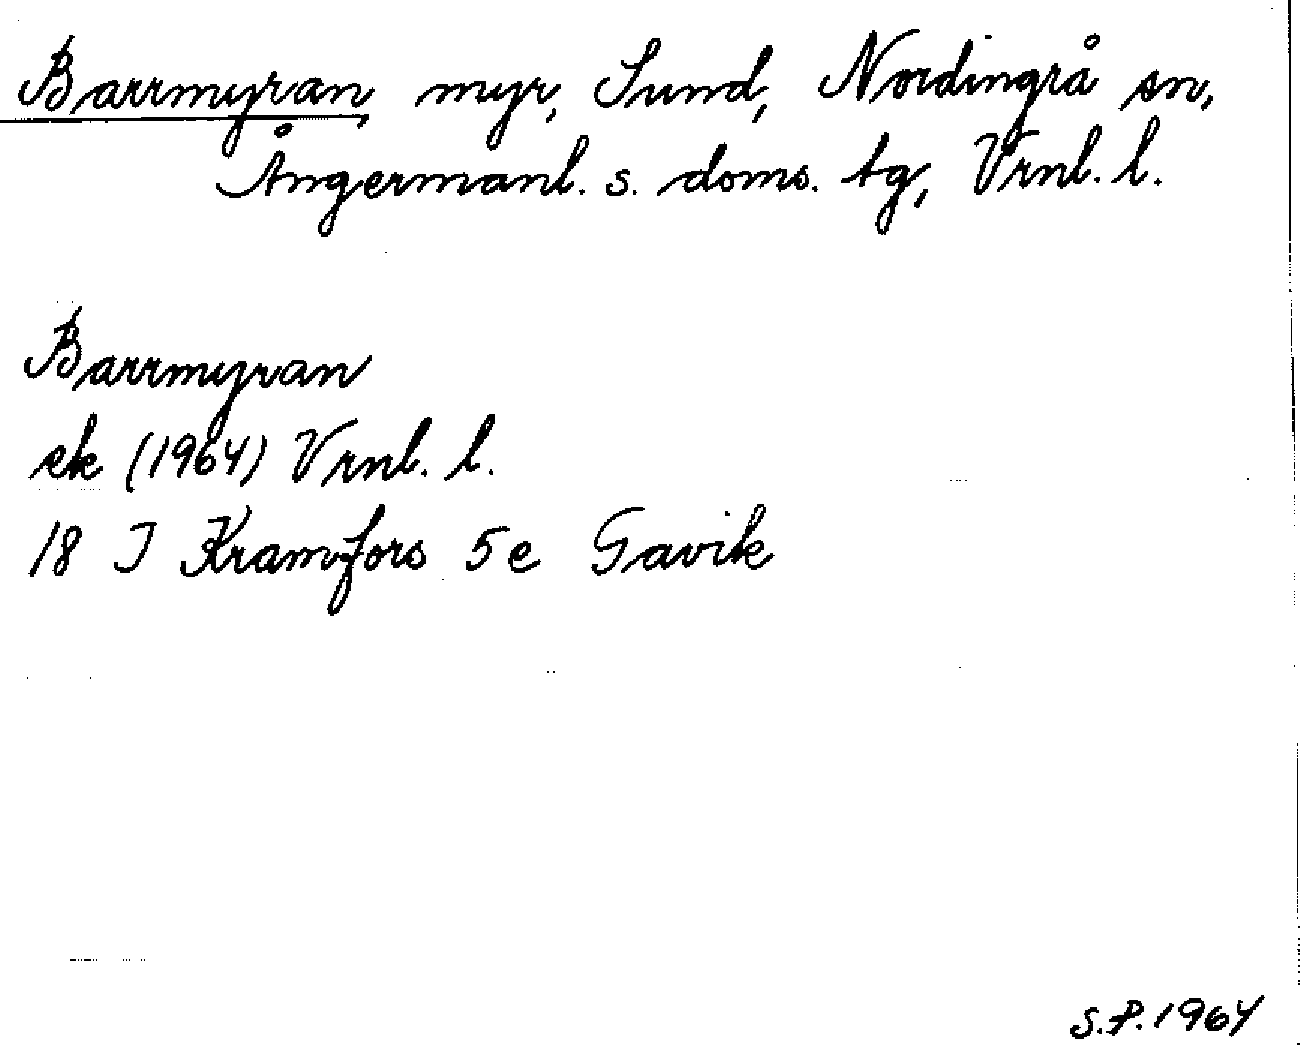 Barrmyran, myr, Sund, Nordingrå sn,
Ångermanl. s. doms. tg, Vrnl. l.
Barrmyran
ek (1964) Vrnl. l.
18 I Kramfors 5e Gavik
S.P. 1964